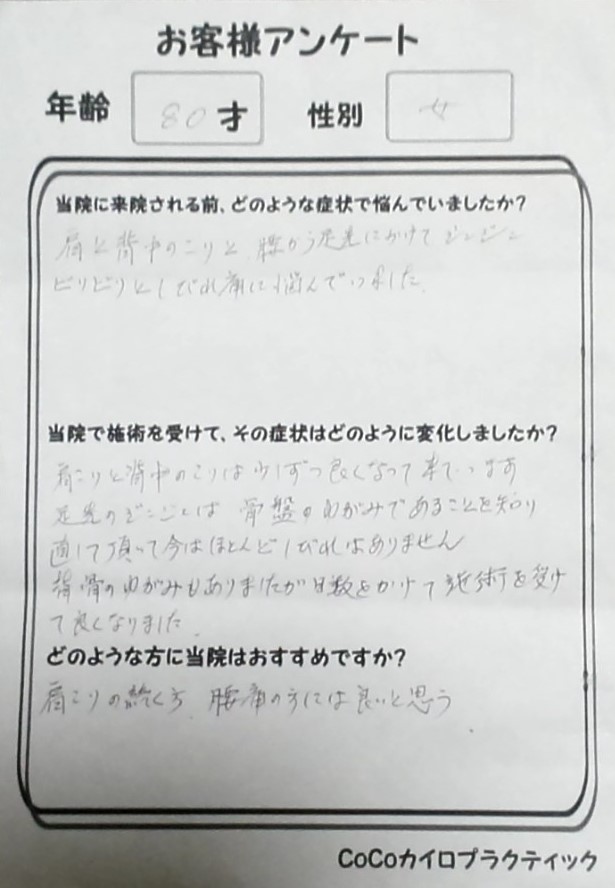 お客様アンケート
年齢 80才 性別 女
当院に来院される前、どのような症状で悩んでいましたか?
肩と背中のこりと、腰から足先にかけてジンジン
ビリビリとしびれ痛に悩んでいました。
当院で施術を受けて、その症状はどのように変化しましたか?
肩こりと背中のこりは少しずつ良くなって来ています
足先のジンジンは 骨盤のゆがみであることを知り
直して頂って今はほとんどしびれはありません
背骨のゆがみもありましたが日数をかけて施術を受け
て良くなりました。
どのような方に当院はおすすめですか?
肩こりの続く方、腰痛の方には良いと思う
CoCoカイロプラクティック